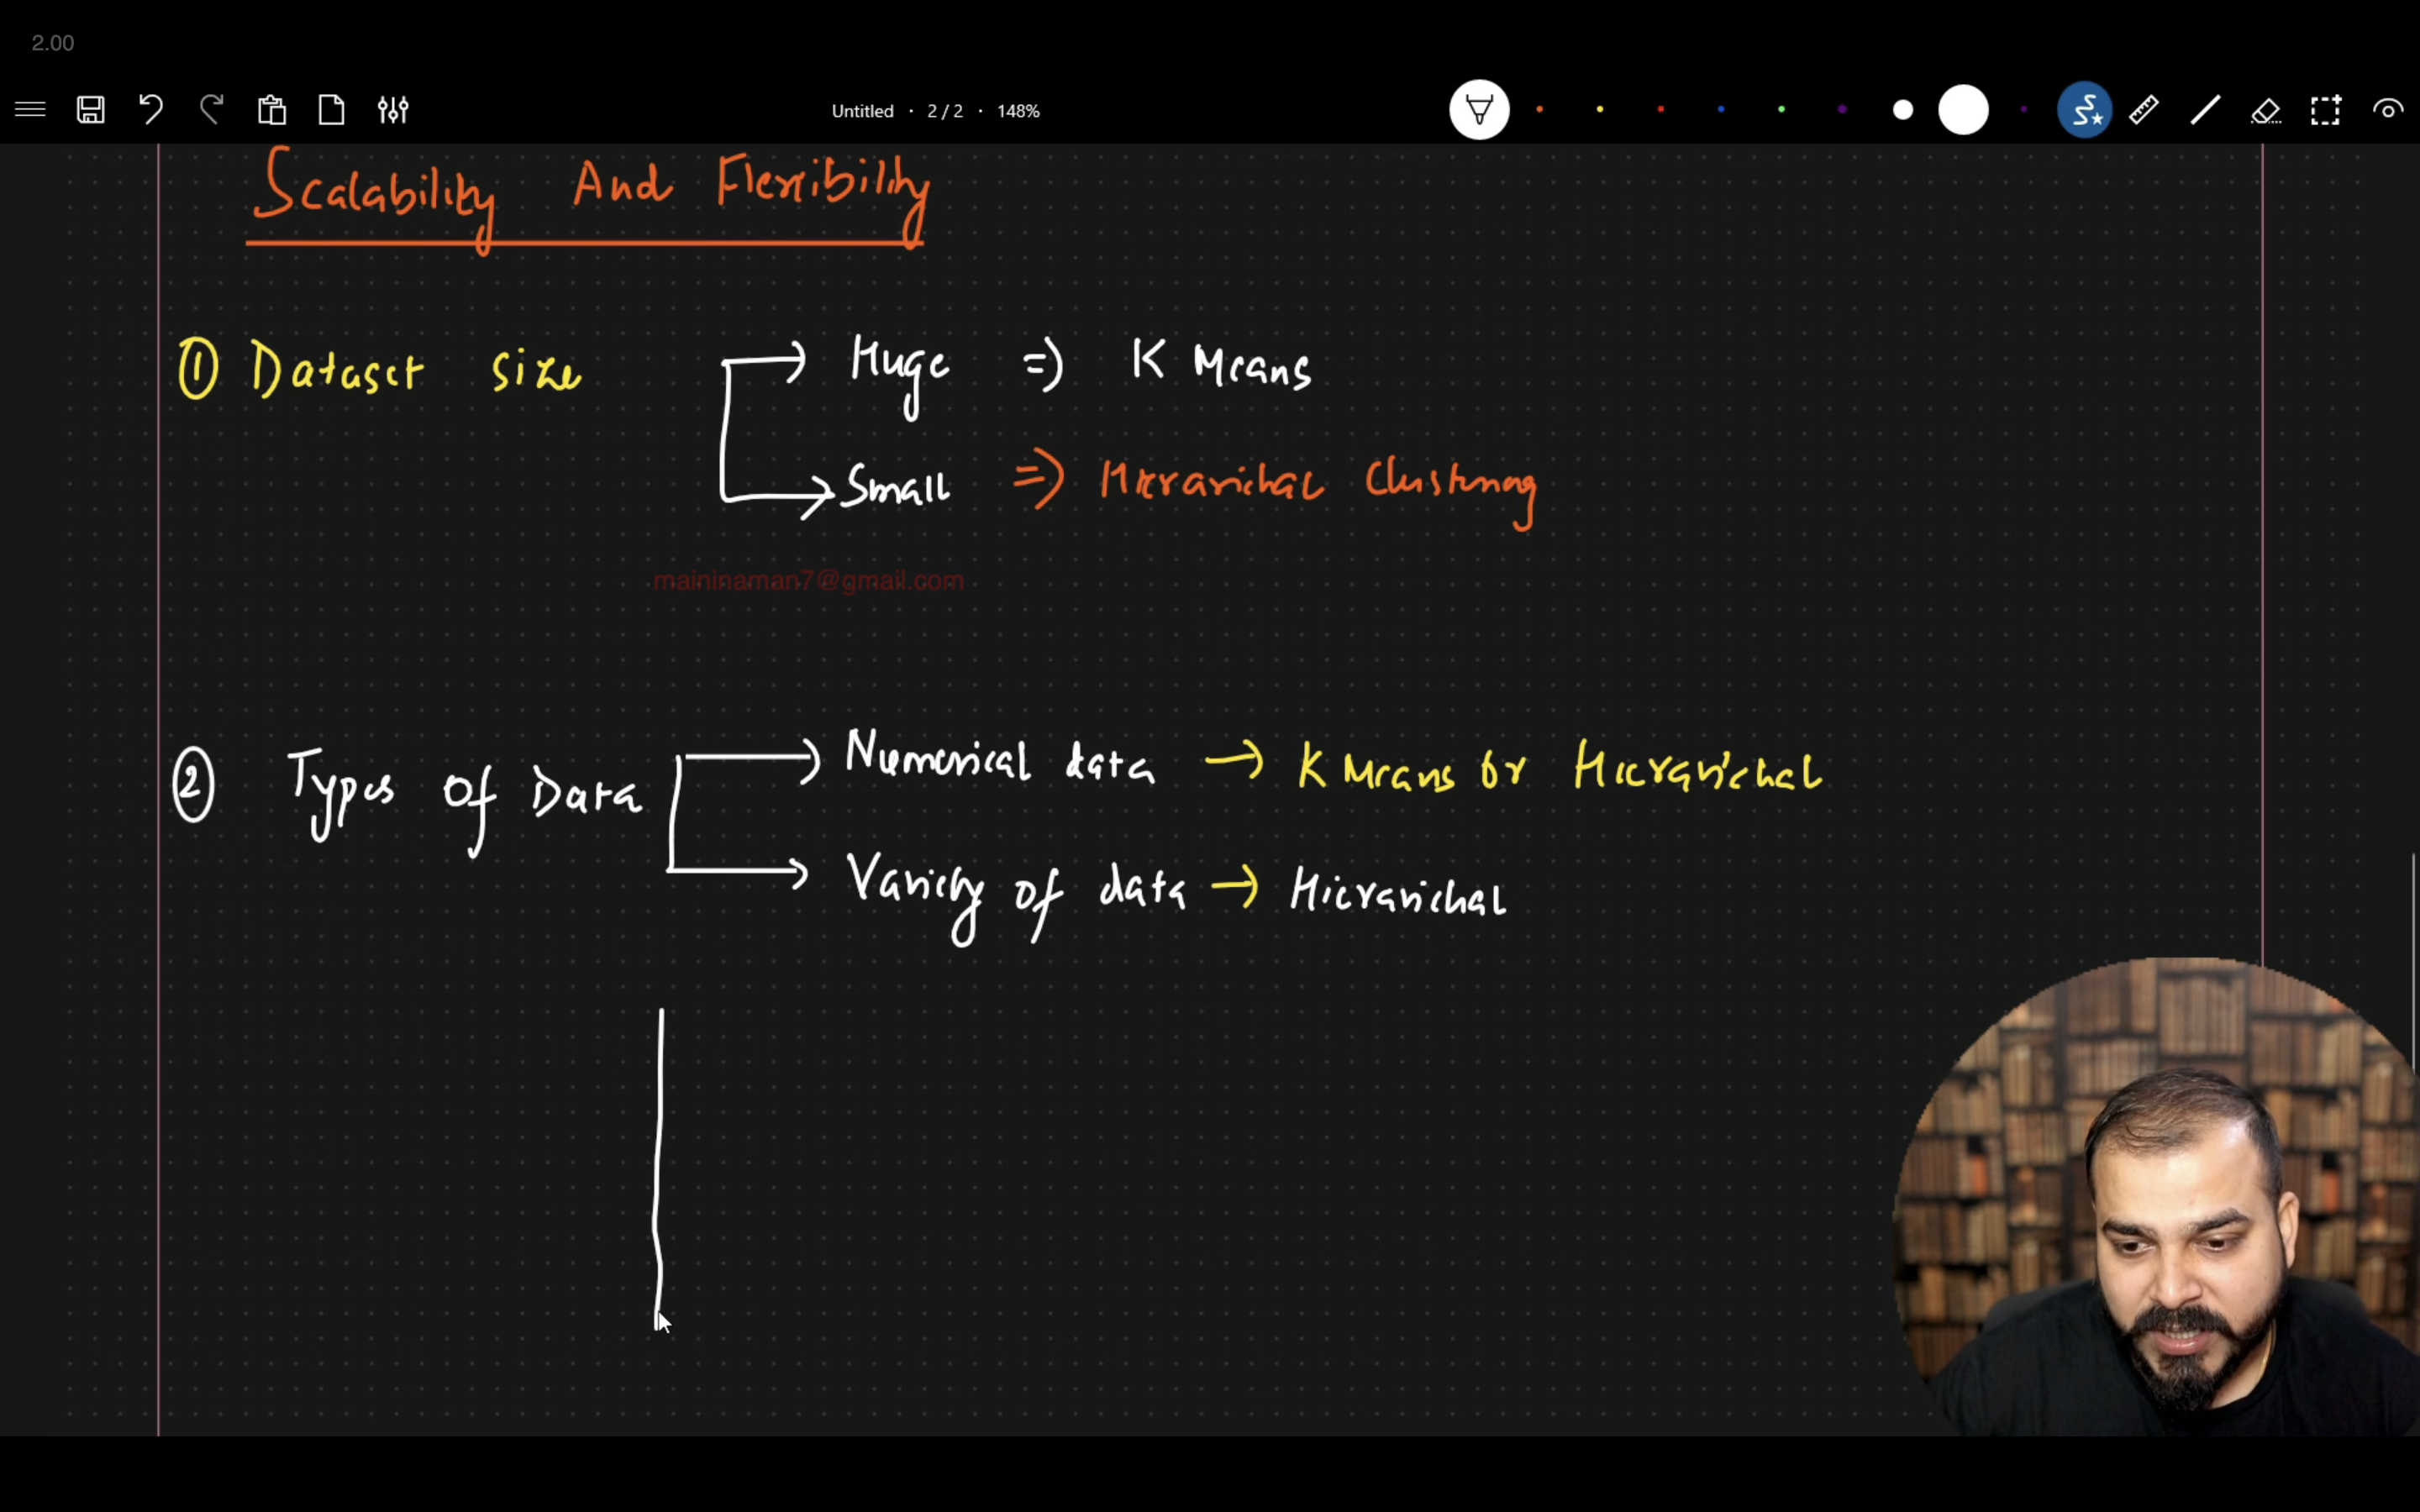 2.00
Untitled · 2 / 2 · 148%
Scalability And Flexibility
① Dataset size
Huge => K Means
Small => Hierarichal Clustering
maininaman7@gmail.com
② Types Of Data
Numerical data → K Means or Hierarichal
Variety of data → Hierarichal